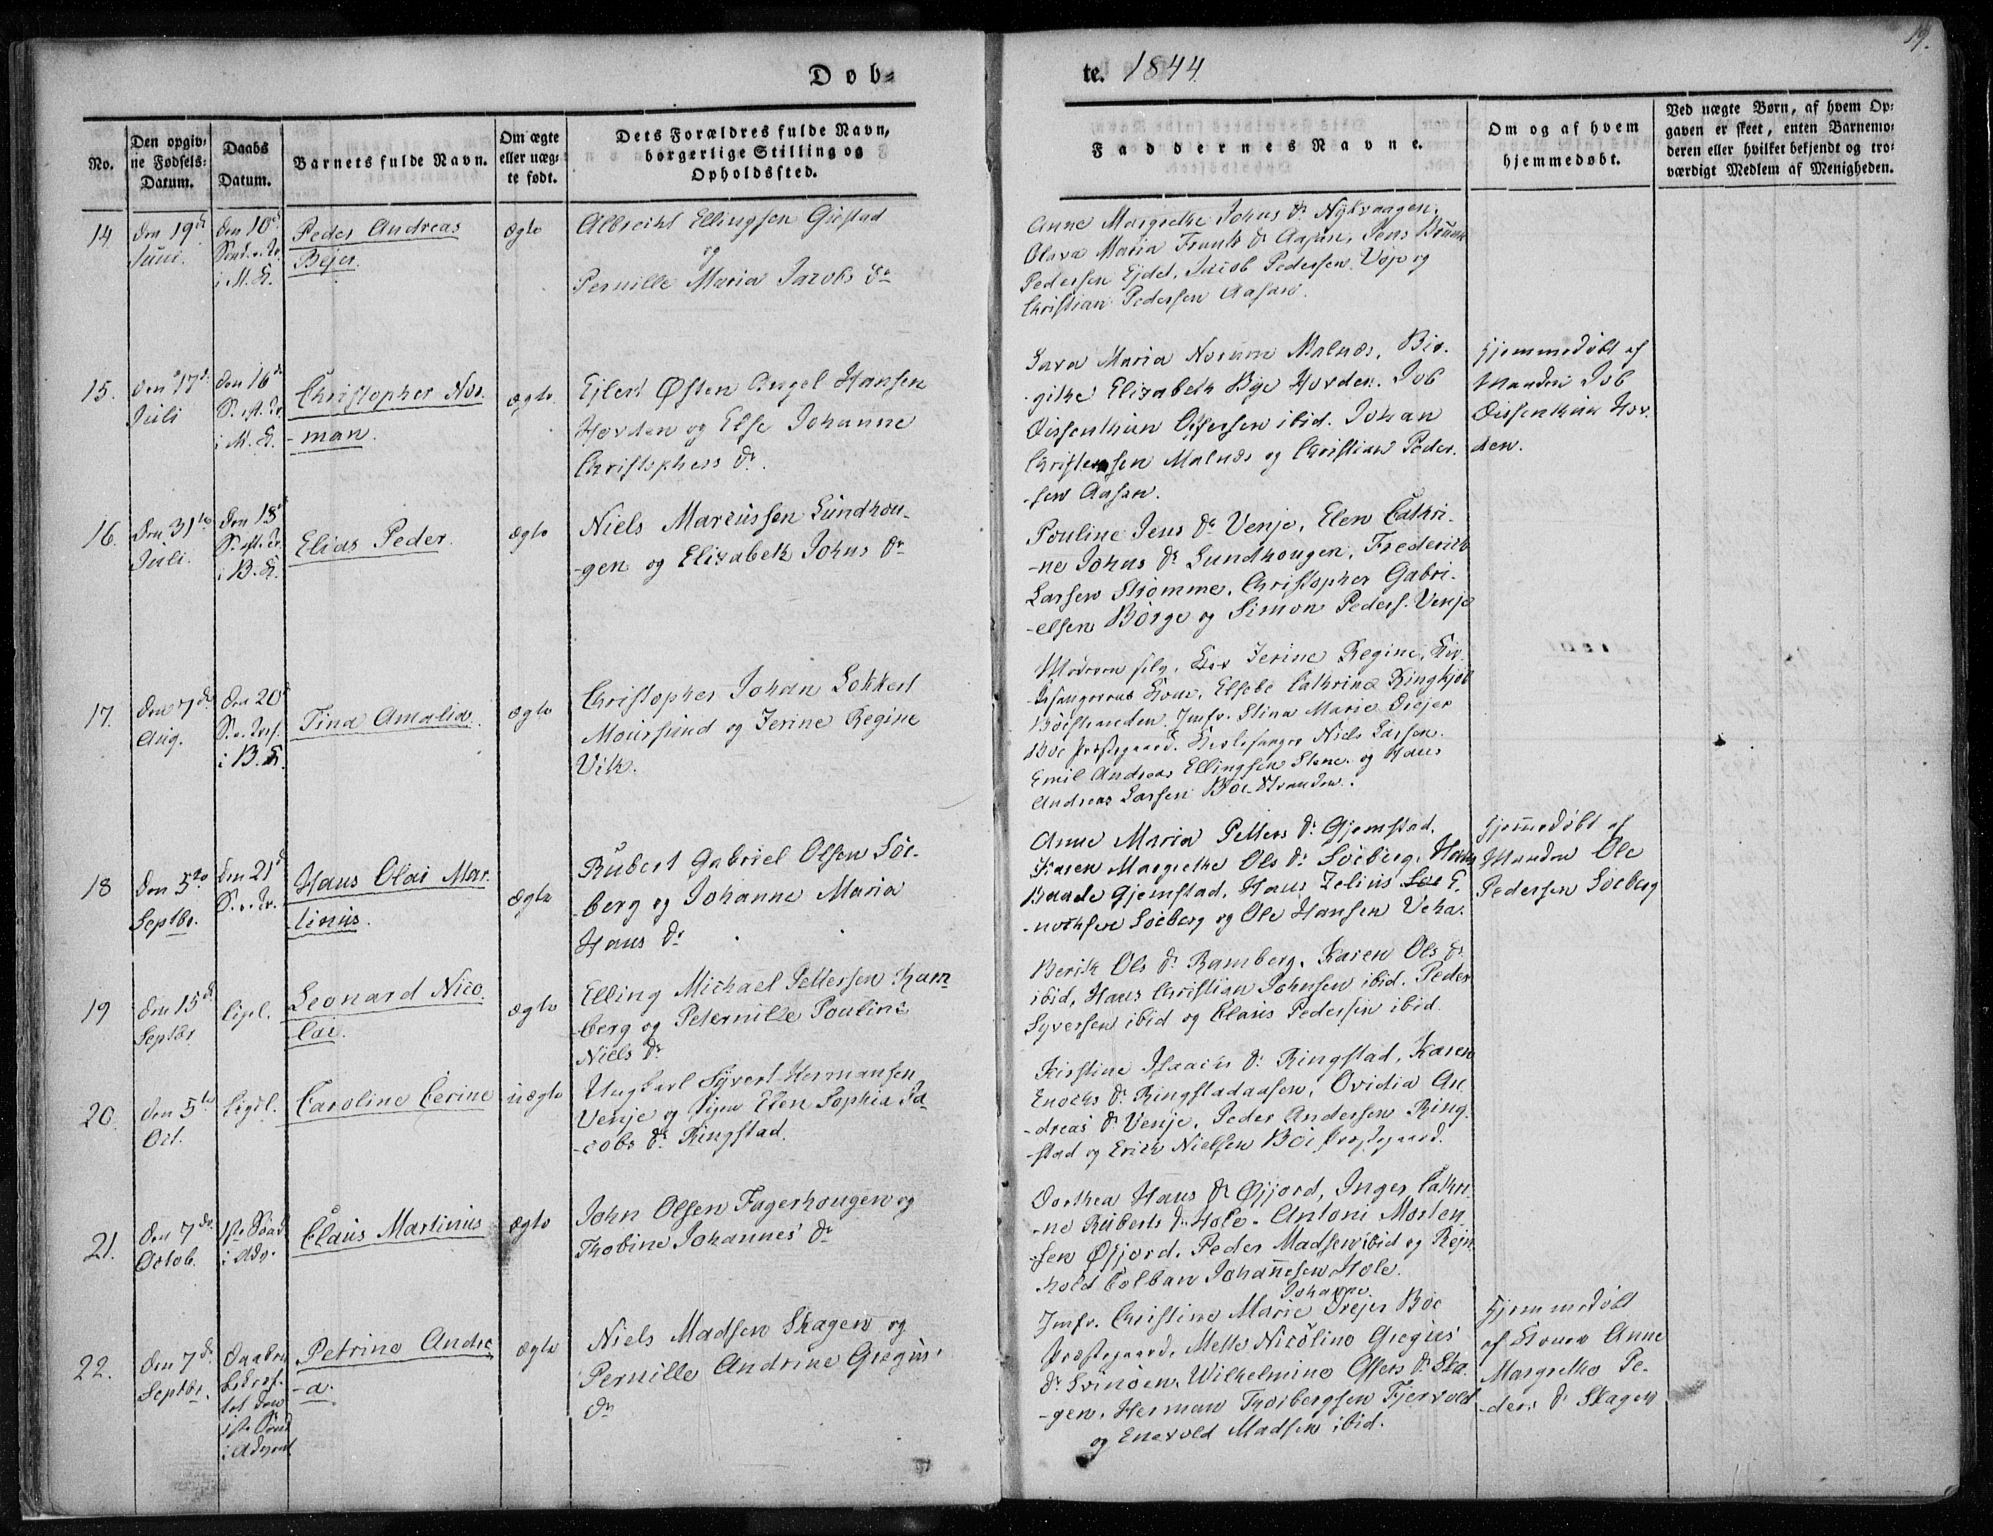 19.
Døb=
te. 1844
No.
Den opgiv-
ne Fødsels-
Datum.
Daabs
Datum.
Barnets fulde Navn.
Om ægte
eller uæg-
te født.
Dets Forældres fulde Navn,
borgerlige Stilling og
Opholdssted.
Faddernes Navne.
Om og af hvem
hjemmedøbt.
Ved uægte Børn, af hvem Op-
gaven er skeet, enten Barnemo-
deren eller hvilket bekjendt og tro-
værdigt Medlem af Menigheden.
14
den 19de
Juni.
den 10de
Sönd. e. Tr.
i M. K.
Peder Andreas
Bejer.
ægte
Albrecht Ellingsen Gustad
og
Pernille Maria Jacobs Dr
Anne Margrethe Johns Dr Nykvaagen,
Olava Maria Frants Dr Aasan, Jens Bruun
Pedersen Ejdet, Jacob Pedersen Voje og
Christian Pedersen Aasan.
15.
den 17de
Juli
den 16de
S. eft. Tr.
i M. K.
Christopher Nor-
-man.
ægte
Ejlert Østen Angel Hansen
Horden og Else Johanne
Christophers Dr.
Sara Maria Norum Malnæs, Bir-
-githe Elizabeth Bye Horden, Job
Dissenthun Offersen ibid. Johan
Christensen Malnæs og Christian Peder-
-sen Aasan.
Hjemmedöbt af
Manden Job
Dissenthun Hor-
den.
16.
den 31te
Juli.
den 18de
S. eft. Tr.
i B. K.
Elias Peder.
ægte
Niels Marcussen Sundhou-
-gen og Elizabeth Johns Dr
Pouline Jens Dr Venje, Elen Cathri-
-ne Johns Dr Sundhougen, Frederich
Larsen Strømme, Christopher Gabri-
-elsen Börge og Simon Peders. Venje
17.
den 7de
Aug.
den 20de
S. e. Tref.
i B. K.
Tina Amalia.
ægte
Christopher Johan Lokkert
Moursund og Jerine Regine
Vik.
Moderen selv, Jerine Regine, Kir-
-kesangerens Kone, Elsebe Cathrina Ringkjöb
Böestranden. Jmfr. Stina Marie Drejer
Böe Præstegaard. Kirkesanger Niels Larsen.
Emil Andreas Ellingsen Stene og Hans
Andreas Larsen Böe-Stranden.
18
den 5te
Septbr.
den 21de
S. e. Tr.
Hans Olai Mar-
tinus.
ægte
Rubert Gabriel Olsen Söe-
-berg og Johanne Maria
Hans Dr
Anne Maria Petters Dr Gjemstad,
Karen Margrethe Ols Dr Söeberg, Hans
Baade Gjemstad, Hans Zelius E-
-nochsen Söeberg og Ole Hansen Veha.
Hjemmedöbt af
Manden Ole
Pedersen Soeberg
19
den 15de
Septbr
Ligel.
Leonard Nico-
-lai.
ægte
Elling Michael Pettersen Ram-
-berg og Peternille Pouline
Niels Dr
Berith Ols Dr Ramberg, Karen Ols Dr
ibid, Hans Christian Johnsen ibid. Peder
Syversen ibid og Claus Pedersen ibid.
20.
den 5te
Oct.
Ligel.
Caroline Cerine
uægte
Ungkarl Syvert Hermansen
Venje og Pigen Elen Sophia Ja-
-cobs Dr Ringstad.
Kirstine Isaachs Dr Ringstad, Karen
Enochs Dr Ringstadaasen, Ovidia An-
-dreas Dr Venje, Peder Andersen Ring-
-stad og Erich Nielsen Böe Præstegaard.
21.
den 7de
Octob.
1ste Sönd.
i Adv.
Claus Martinus
ægte
John Olsen Fagerhougen og
Thobine Johannes Dr
Dorthea Hans Dr Øjjord, Inger Cathri-
-ne Ruberts Dr Hole. Antoni Morten-
-sen Øfjord, Peder Madsen ibid og Rejn-
hold Colban Johannesen Hole.
22.
den 7de
Septbr.
Daaben
bekræf-
tet den
1ste Sönd
i Advent
Petrine Andre-
-a.
ægte
Niels Madsen Skagen og
Pernille Andrine Gregus'
Dr
Johanne
Jmfr. Christine Marie Drejer Böe
Præstegaard, Mette Nicoline Gregus'
Dr Svinöen, Wilhelmine Offers Dr Ska-
-gen, Herman Thorbergsen Fjervold
og Enevold Madsen ibid.
Hjemmedöbt
af Konen Anne
Margrethe Pe-
-ders Dr Skagen